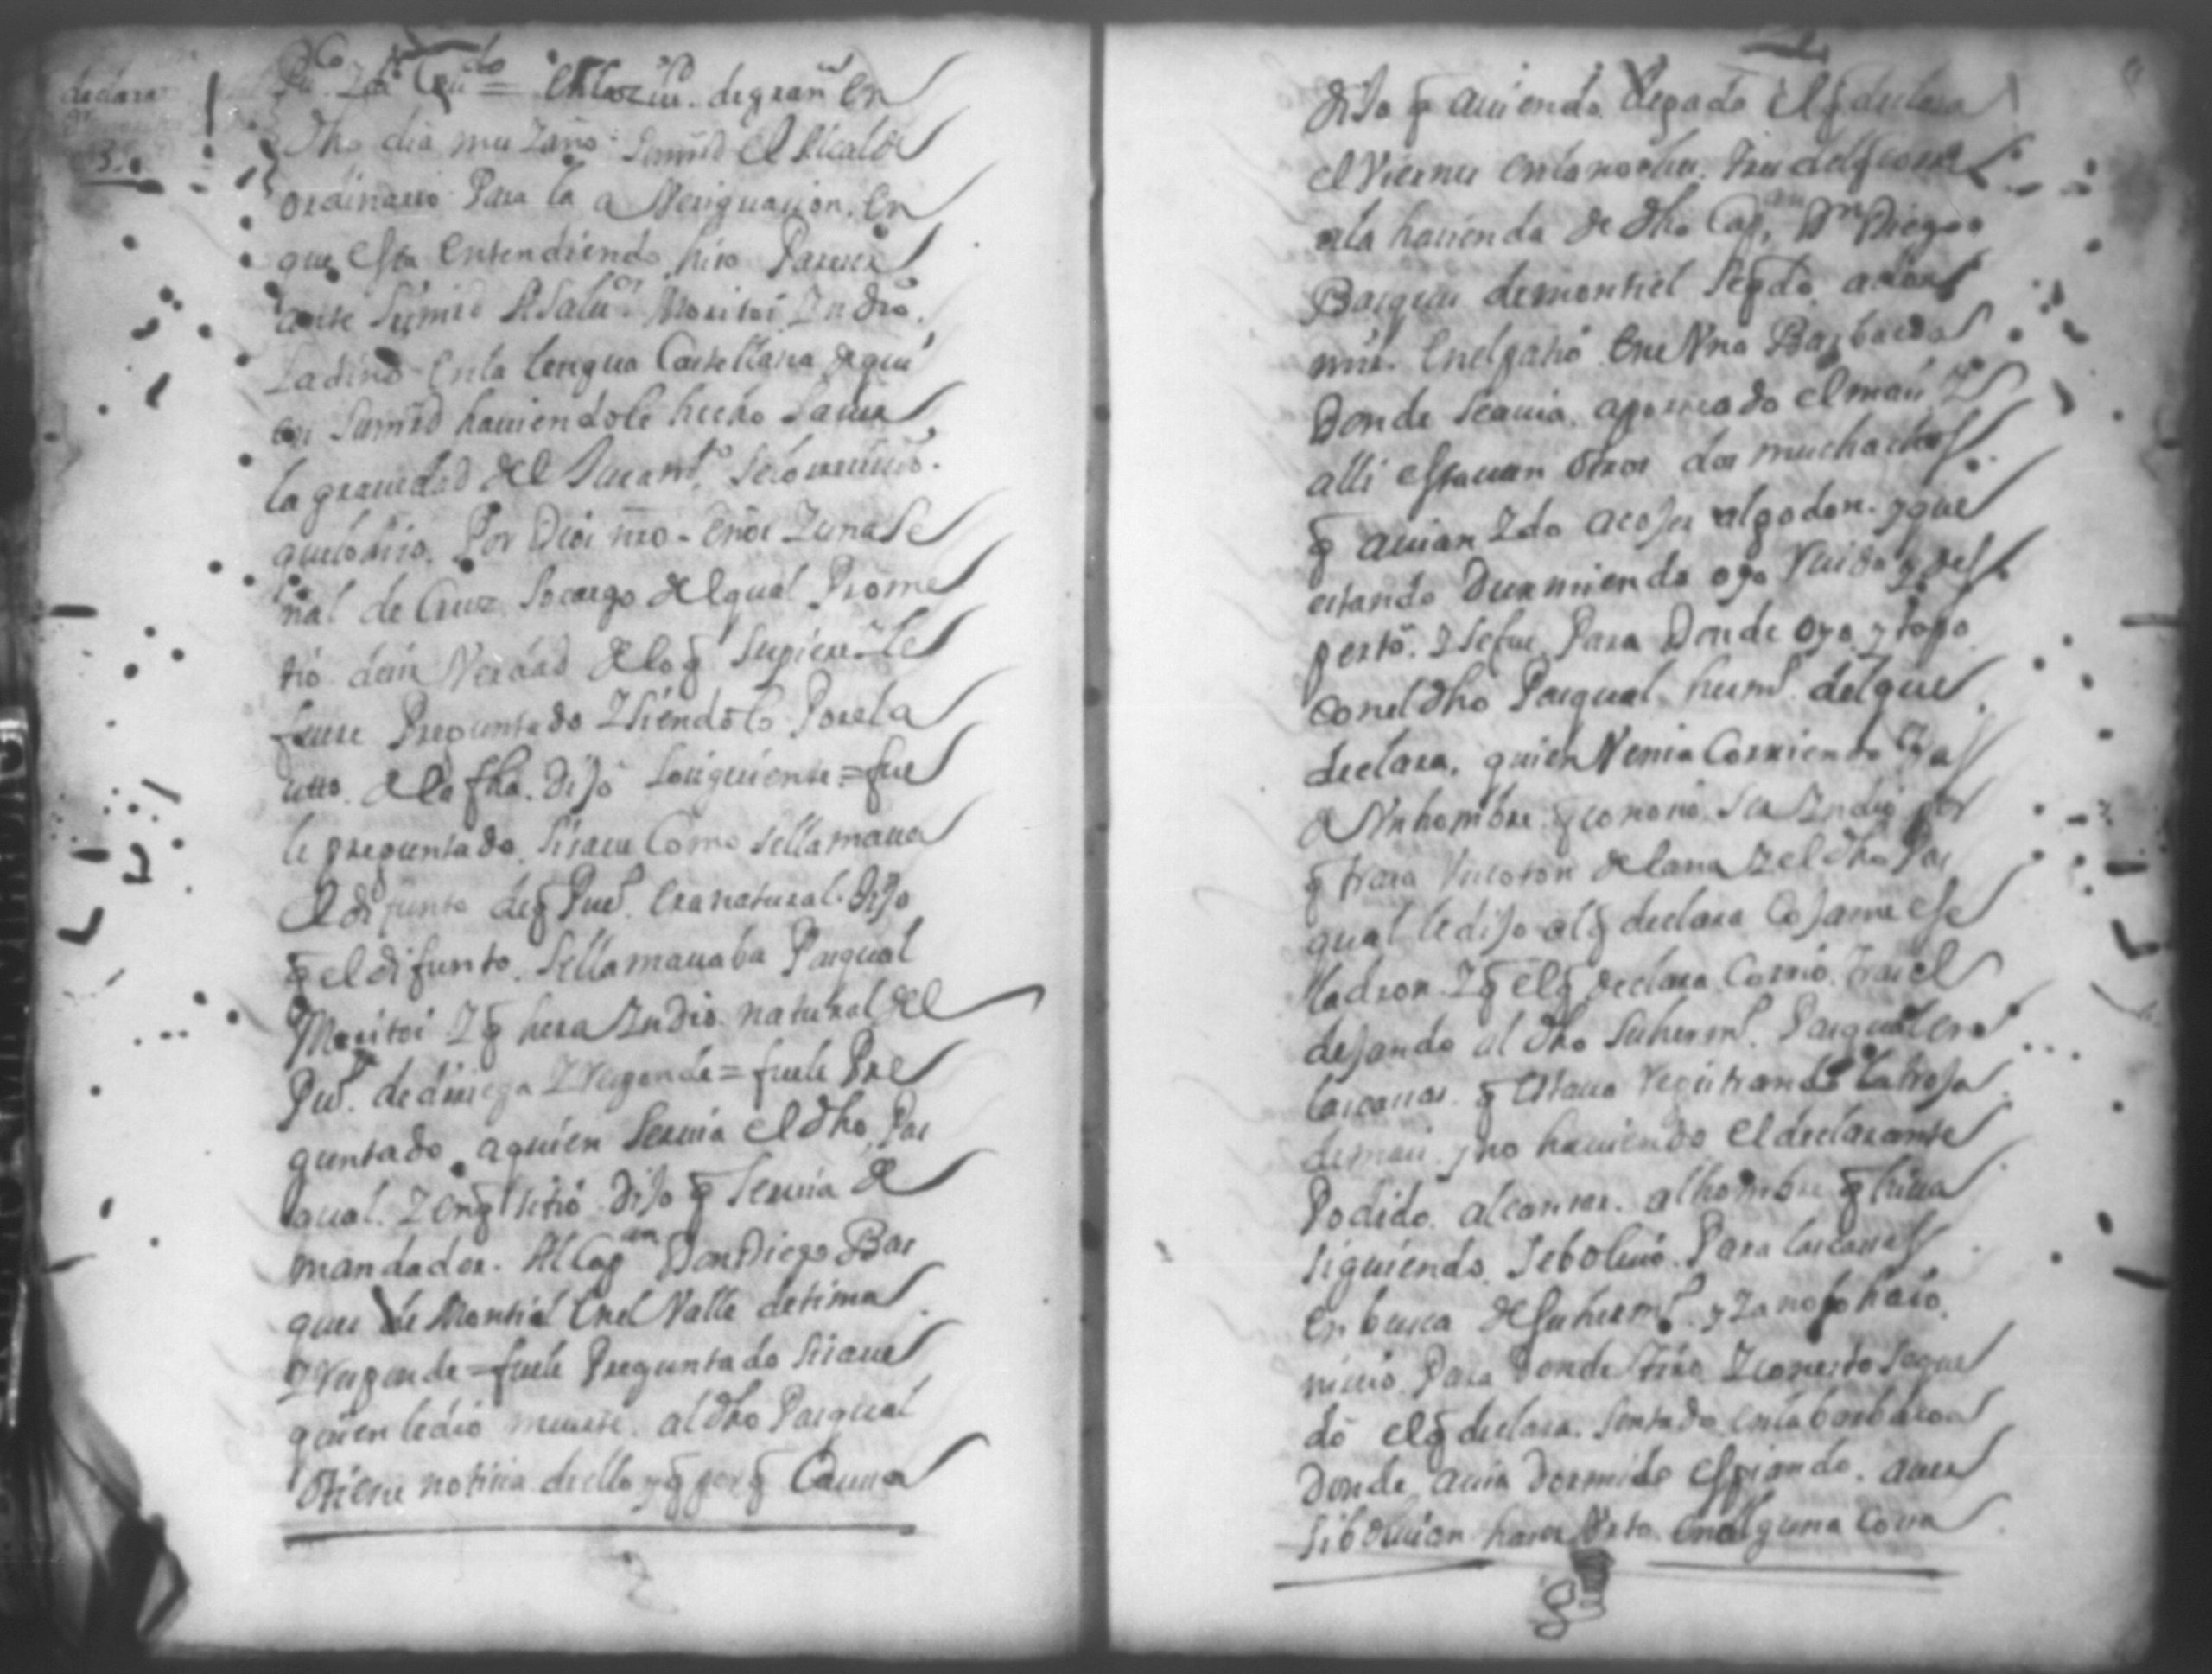 declaraⁿ
3.
en
dho dia mes y año. Sumrd el Alcalde
ordinario Para la aVeriguacion. en
que esta entendiendo hiso Pareser
ante Sumrd A Saluᵒʳ Moritoi Yndio.
Ladino en la lengua Castellana de quien
Sumrd hauiendole hecho Sauer
la grauedad del Juramᵗᵒ. Se lo reciuio.
que lo hiso. Por Dios nro Señor Y una Se
ñal de Cruz Socargo del qual Prome
tio desir Verdad de lo q̃ Supiere Y le
fuere Preguntado Y siendolo Por el a
utto. de la fha. dijo lo siguiente = fue
le preguntado. Si saue Como se llamaua
el difunto de q̃ Pueᵒ. era natural. dijo
q̃ el difunto. Se llamauaba Pasqual
Moritoi Y q̃ hera Yndio natural del
Pueᵒ. de Ynesga Y Responde = fuele Pre
guntado a quien Seruia el dho Pas
qual. Y en q̃ sitio. dijo q̃ Seruia de
mandador. Al Capᵃⁿ Don Diego Bas
ques de Montiel en el Valle de tima
Y Responde = fuele Preguntado Si saue
quien le dio muerte. al dho Pasqual
o tiene noticia de ello y q̃ por q̃ Causa
dijo q̃ auiendo llegado el q̃ declara
el Viernes en la noche.
a la hasienda de dho Capᵃⁿ. Dⁿ Diego
Basques de montiel Se q̃do a dor
mir. en el patio en Vna Barbacoa
Donde Se auia. aporreado el mais Y
alli estauan otros dos muchachos
q̃ auian Ydo a cojer algodon. y que
estando Durmiendo oyo Ruido y des
perto. Y se fue Para Donde oyo y topo
con el dho Pasqual. hermᵒ. del que
declara. quien Venia Corriendo tras
de Vn hombre q̃ conosio. Ser Yndio por
q̃ traia de lana Y el dho Pas
qual le dijo al q̃ declara Cojame ese
ladron Y q̃ el q̃ declara Corrio. tras el
dejando al dho Su hermᵒ. Pasqual en
las casas. q̃ estaua registrando la troja
de mais y no hauiendo el declarante
Podido. alcansar. al hombre q̃ hiua
Siguiendo. Se boluio. Para las casas
en busca de Su hermᵒ. y Ya no
Para Donde Y con esto Se que
do el q̃ declara. Sentado en la barbacoa
Donde auia dormido espiando. auer
Si boluian haser Urto en alguna Cossa